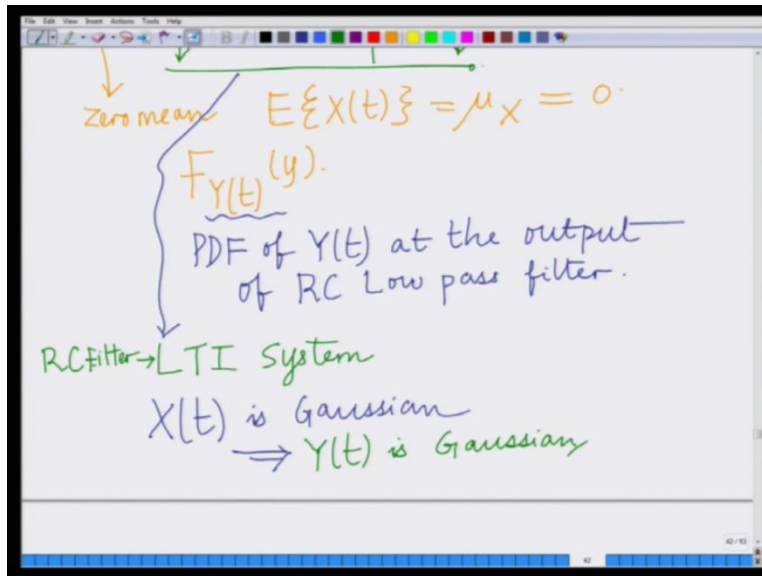 File Edit View Insert Actions Tools Help
B I
Zero mean E{X(t)} = μ_X = 0.
F_{Y(t)}(y).
PDF of Y(t) at the output
of RC Low pass filter.
RC Filter → LTI System
X(t) is Gaussian
⇒ Y(t) is Gaussian
42 / 93
42